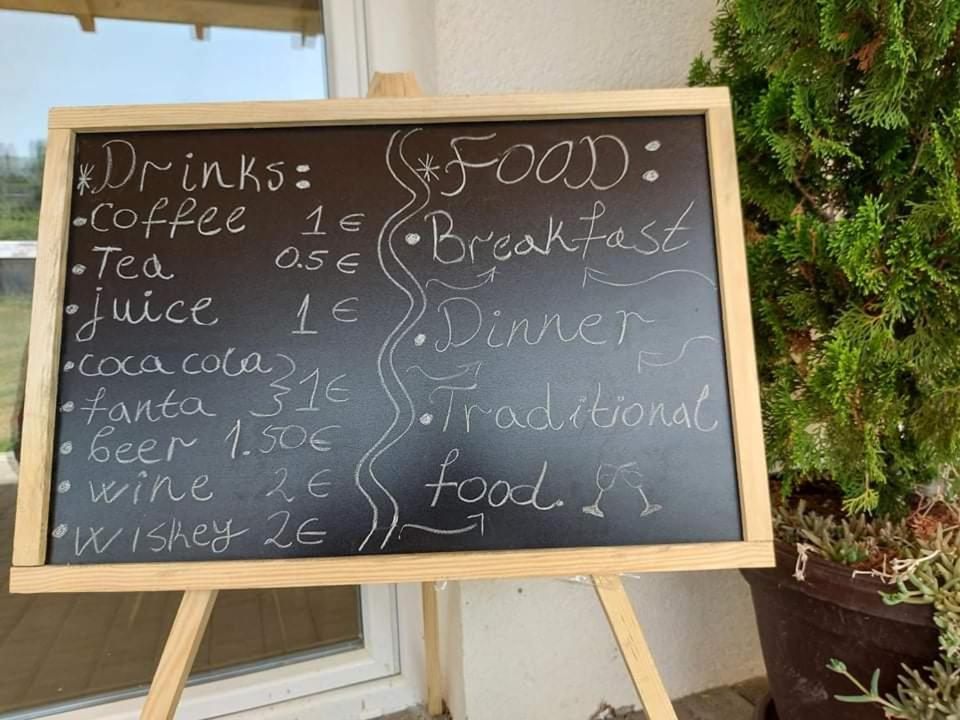 *Drinks:
•coffee 1€
•Tea 0.5€
•juice 1€
•coca cola
•fanta } 1€
•beer 1.50€
•wine 2€
•wiskey 2€
*FOOD:
•Breakfast
•Dinner
•Traditional
food.